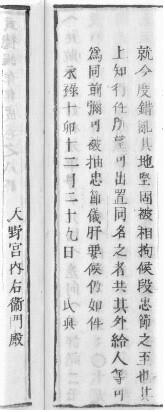 就今度錯亂其地堅固被相拘候段忠節之至也其
上知行任所望可出置同名之者共其外給人等可
爲同前彌可被抽忠節儀肝要候仍如件
永祿十卯十二月二十九日　氏與
天野宮內右衞門殿